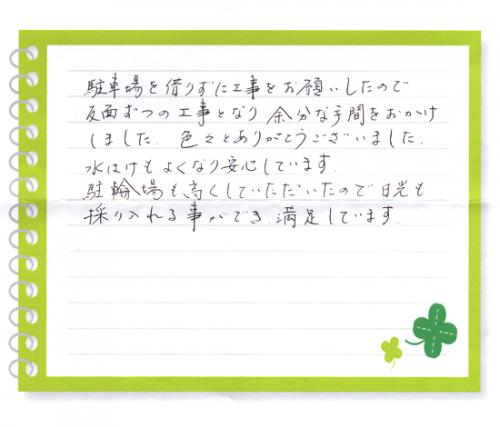 駐車場を借りずに工事をお願いしたので
反面ずつの工事となり余分な手間をおかけ
しました。色々とありがとうございました。
水はけもよくなり安心しています。
駐輪場も高くしていただいたので日光も
採り入れる事ができ、満足しています。